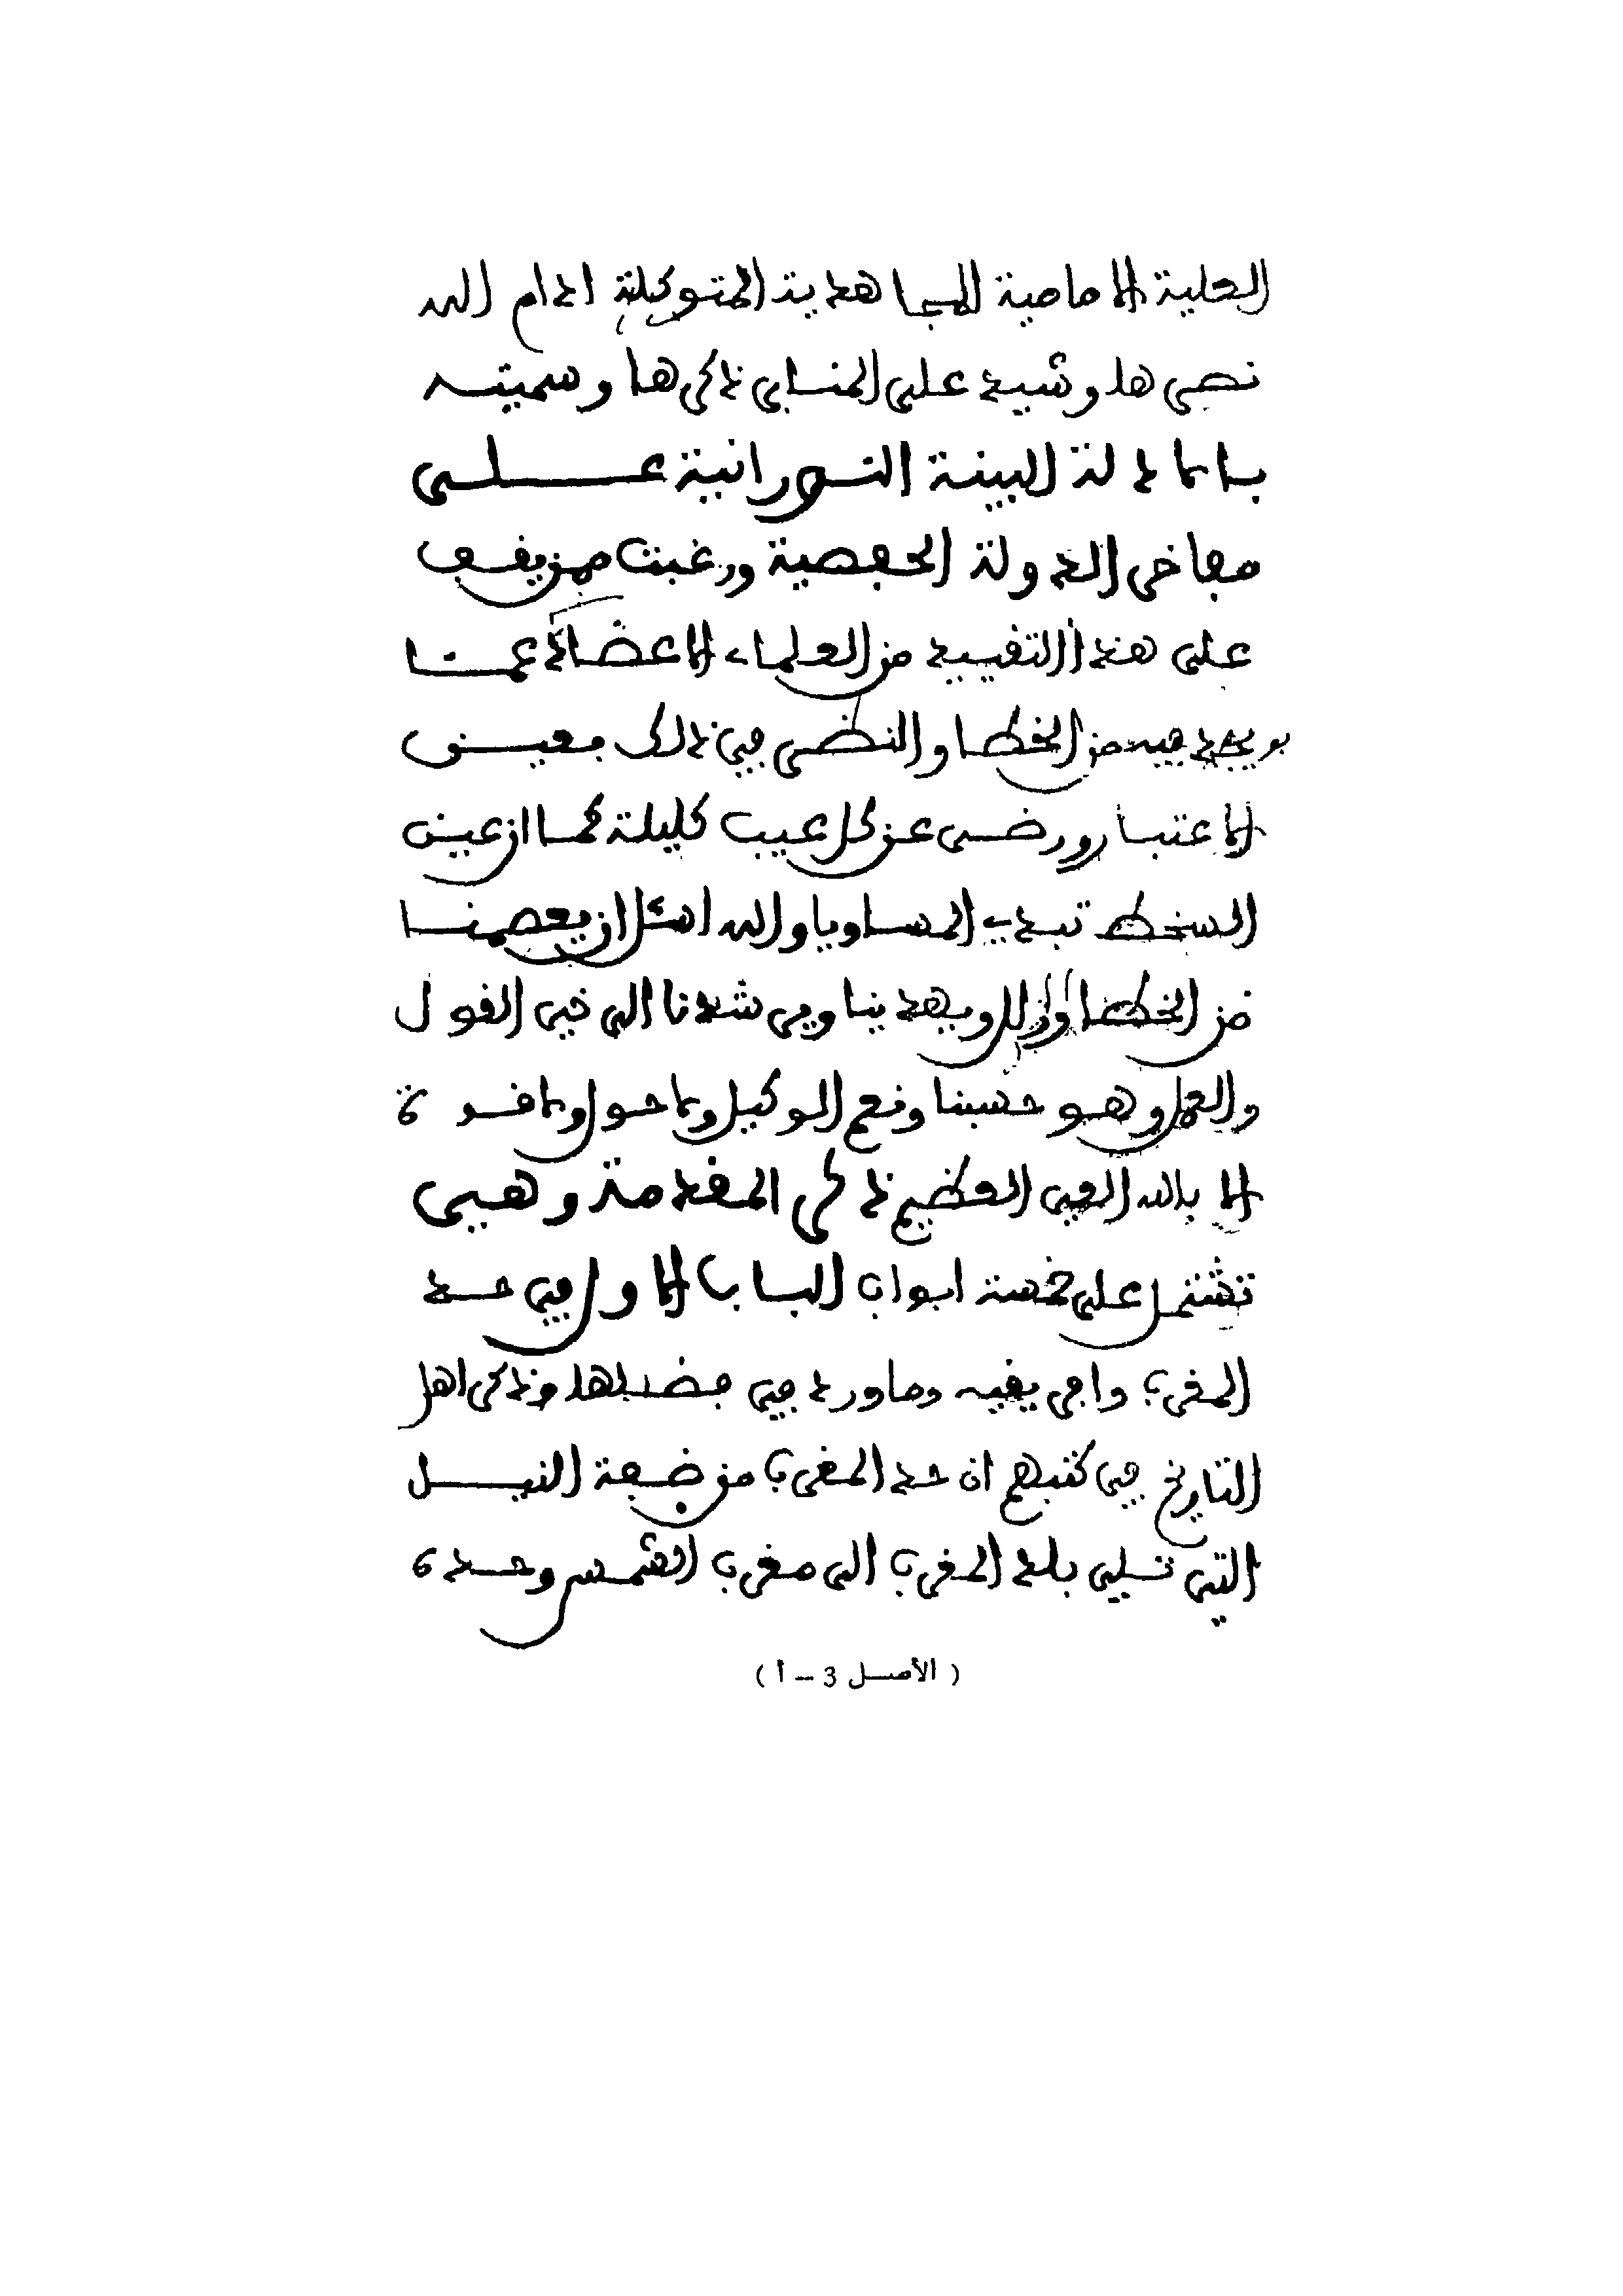 العلية الامامية المجاهدية المتوكلية ادام الله
نصرها وشيد على المنابر ذكرها وسميته
بالادلة البينة النورانية على
مفاخر الدولة الحفصية ورغبت ممن يقف
على هذا التقييد من العلماء الاعضاء عما
يوجد فيه من الخطا والنضر في ذلك بعين
الاعتبار ورضى عن كل عيب كليلة كما ان عين
السخط تبدي المساويا والله اسئل ان يعصمنا
من الخطا والزلل ويهدينا ويرشدنا الى خير القول
والعمل وهو حسبنا ونعم الوكيل ولا حول ولا قوة
الا بالله العلي العظيم ذكر المقدمة وهي
تشتمل على خمسة ابواب الباب الاول في حد
المغرب وافريقيه وما ورد في فضلها وذكر اهل
التاريخ في كتبهم ان حد المغرب من ضفة النيل
التي تلي بلد المغرب الى مغرب الشمس وحده
( الأصل 3 – أ )